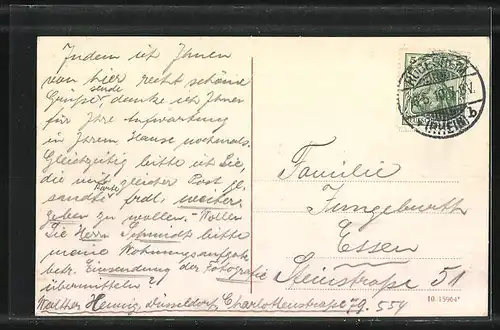 Indem ich Ihnen
von hier recht schöne
Grüße sende, danke ich Ihnen
für Ihre Aufwartung
in Ihrem Hause nochmals.
Gleichzeitig bitte ich Sie,
die mit gleicher Post ge-
sandte Karte frdl. weiter-
geben zu wollen. – Wollen
Sie Herrn Schmidt bitte
meine Wohnungsaufgabe
betr. Einsendung der Fotografie
übermitteln?
Walther Hennig, Düsseldorf, Charlottenstraße 79. 554
Familie
Jungeburth
Essen
Steinstraße 51
RÜDESHEIM
(RHEIN) b
10 15964*